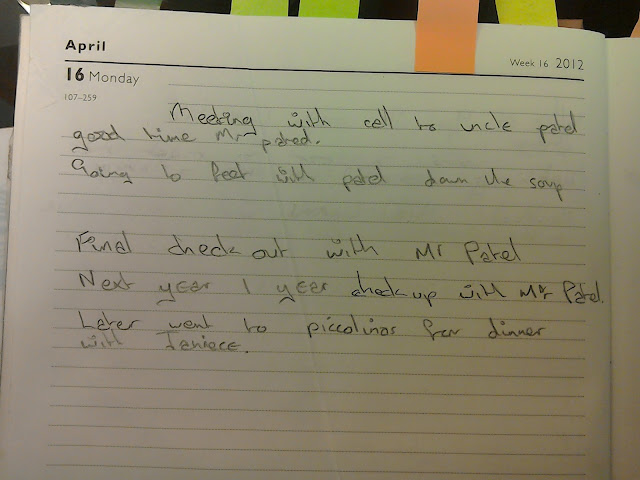 April
Week 16 2012
16 Monday
107–259
Meeting with cell to uncle patel
good time Mr pated.
Going to feet with patel down the soup
Final check out with Mr Patel
Next year 1 year check up with Mr Patel.
Later went to piccolinos for dinner
with Janiece.